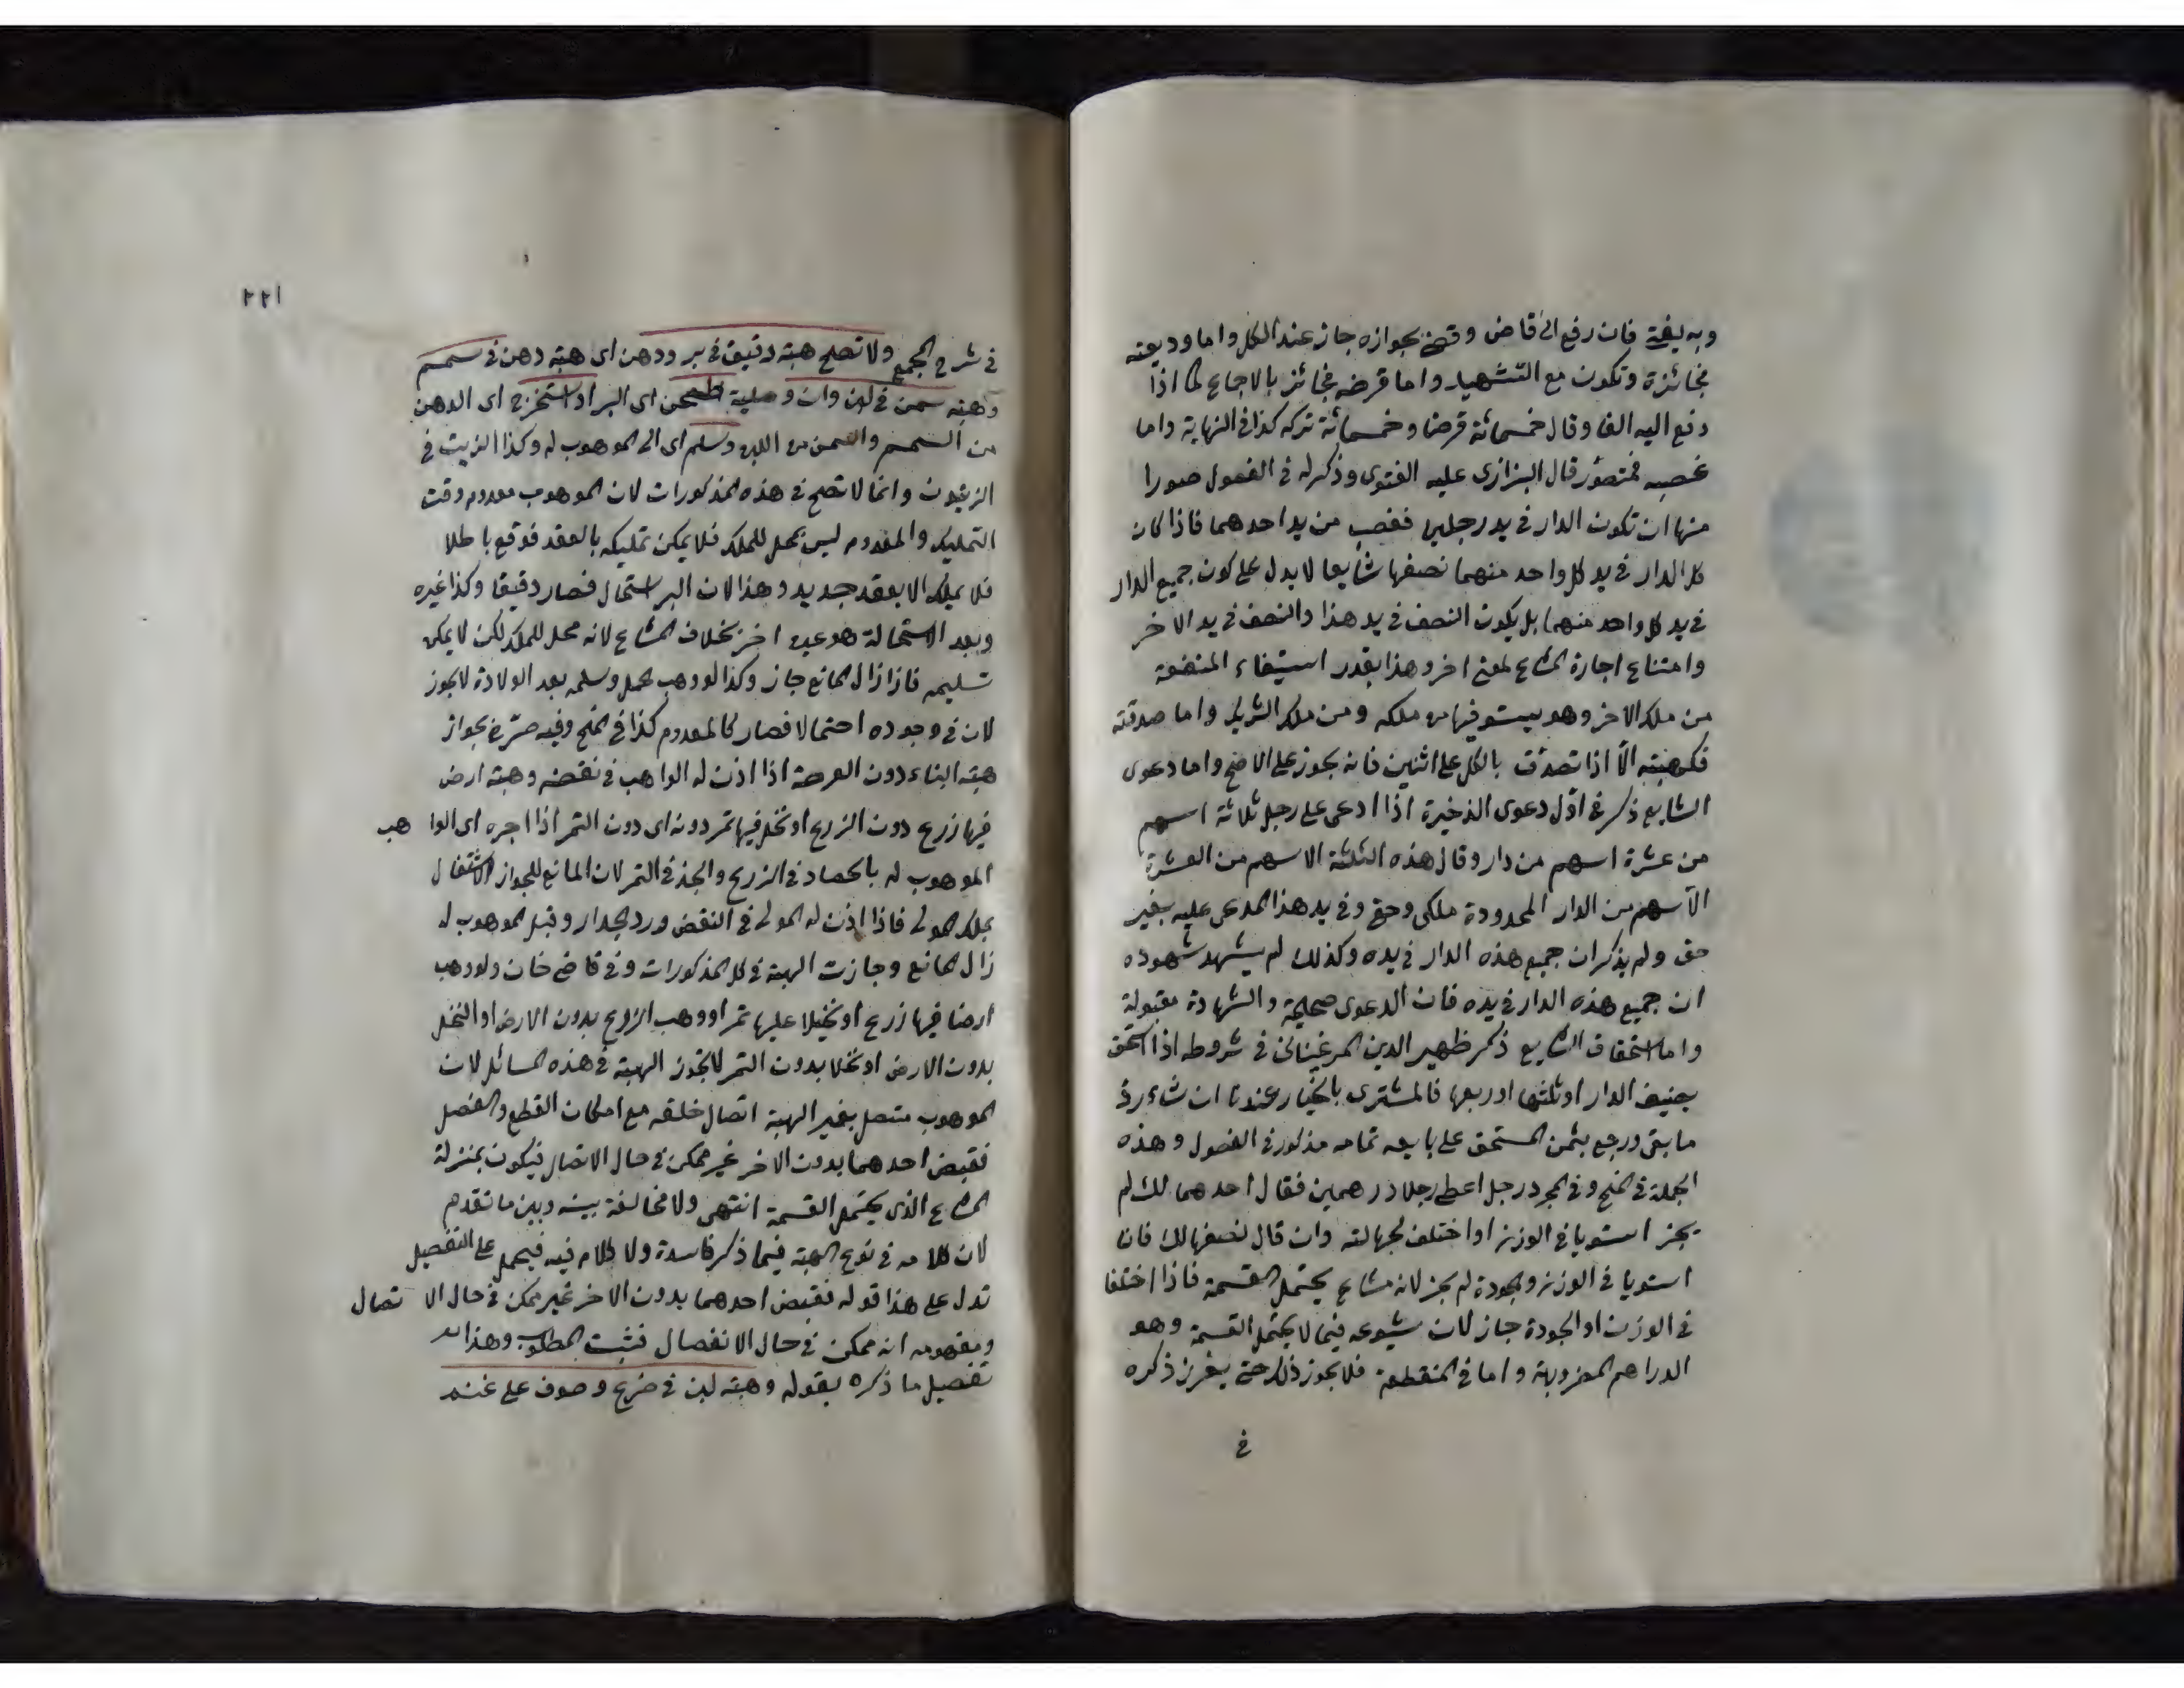 وبه يفتى فان رفع الى قاض وقضى بجوازه جاز عند الكل واما وديعته
فجائزة وتكون مع الشهيد واما قرضه فجائز بالاجماع كما اذا
دفع اليه الفا وقال خمسمائة قرضا وخمسمائة شركة كذا فى النهاية واما
غصبه فمتصور قال البزازى عليه الفتوى وذكر له فى الفصول صورا
منها ان تكون الدار فى يد رجلين فغصب من يد احدهما فاذا كان
كل الدار فى يد كل واحد منهما نصفها شايعا لا يدل على كون جميع الدار
فى يد كل واحد منهما بل يكون النصف فى يد هذا والنصف فى يد الاخر
وامتناع اجارة المشاع لمعنى اخر وهذا بقدر استيفاء المنفعة
من ملك الاخر وهو يستوفيها من ملكه ومن ملك الشريك واما صدقته
فكهبته الا اذا تصدق بالكل على اثنين فانه يجوز على الاصح واما دعوى
الشايع ذكر فى اول دعوى الذخيرة اذا ادعى على رجل ثلاثة اسهم
من عشرة اسهم من دار وقال هذه الثلثة الاسهم من العشرة
الاسهم من الدار المحدودة ملكى وحقى وفى يد هذا المدعى عليه بغير
حق ولم يذكر ان جميع هذه الدار فى يده وكذلك لم يشهد شهوده
ان جميع هذه الدار فى يده فان الدعوى صحيحة والشهادة مقبولة
واما استحقاق الشايع ذكر ظهير الدين المرغينانى فى شروطه اذا استحق
بنصف الدار او ثلثها او ربعها فالمشترى بالخيار عندنا ان شاء رد
ما بقى ورجع بثمن المستحق على بايعه تمامه مذكور فى الفصول وهذه
الجملة فى المنح وفى المجرد رجل اعطى رجلا درهمين فقال احدهما لك لم
يجز استويا فى الوزن او اختلف لجهالته وان قال نصفها لك فان
استويا فى الوزن والجودة لم يجز لانه مشاع يحتمل القسمة فاذا اختلفا
فى الوزن او الجودة جاز لان شيوعه فيما لا يحتمل القسمة وهو
الدراهم المضروبة واما فى المنقطعة فلا يجوز ذلك حتى يفرز ذكره
فى
٢٢١
فى شرح المجمع ولا تصح هبة دقيق فى بر ودهن اى هبة دهن فى سمسم
وهبة سمن فى لبن وان وصلية طحن اى البر او استخرج اى الدهن
من السمسم والسمن من اللبن وسلم اى الى الموهوب له وكذا الزيت فى
الزيتون وانما لا تصح فى هذه المذكورات لان الموهوب معدوم وقت
التمليك والمعدوم ليس بمحل للملك فلا يمكن تمليكه بالعقد فوقع باطلا
فلا يملك الا بعقد جديد وهذا لان البر استحال فصار دقيقا وكذا غيره
وبعد الاستحالة هو عين اخر بخلاف المشاع لانه محل للملك لكن لا يمكن
تسليمه فاذا زال المانع جاز وكذا لو وهب الحمل وسلمه بعد الولادة لا يجوز
لان فى وجوده احتمالا فصار كالمعدوم كذا فى المنح وفيه صرح بجواز
هبة البناء دون العرصة اذا اذن له الواهب فى نقضه وهبة ارض
فيها زرع دون الزرع او نخل فيها تمر دونه اى دون التمر اذا اجره اى الواهب
الموهوب له بالحصاد فى الزرع والجذ فى التمر لان المانع للجواز الاشتغال
بملك المولى فاذا اذن له المولى فى النقض ورد الجدار وقبل الموهوب له
زال المانع وجازت الهبة فى كل المذكورات وفى قاضى خان ولو وهب
ارضا فيها زرع او نخيلا عليها تمر او وهب الزرع بدون الارض او النخل
بدون الارض او نخلا بدون التمر لا تجوز الهبة فى هذه المسائل لان
الموهوب متصل بغير الهبة اتصال خلقه مع امكان القطع والفصل
فقبض احدهما بدون الاخر غير ممكن فى حال الاتصال فيكون بمنزلة
المشاع الذى يحتمل القسمة انتهى ولا مخالفة بينه وبين ما تقدم
لان كلامه فى نوع الهبة فيما ذكر فاسدة ولا كلام فيه فيحمل على التفصيل
تدل على هذا قوله فقبض احدهما بدون الاخر غير ممكن فى حال الاتصال
ومفهومه انه ممكن فى حال الانفصال فثبت المطلوب وهذا
تفصيل ما ذكره بقوله وهبة لبن فى ضرع وصوف على غنم